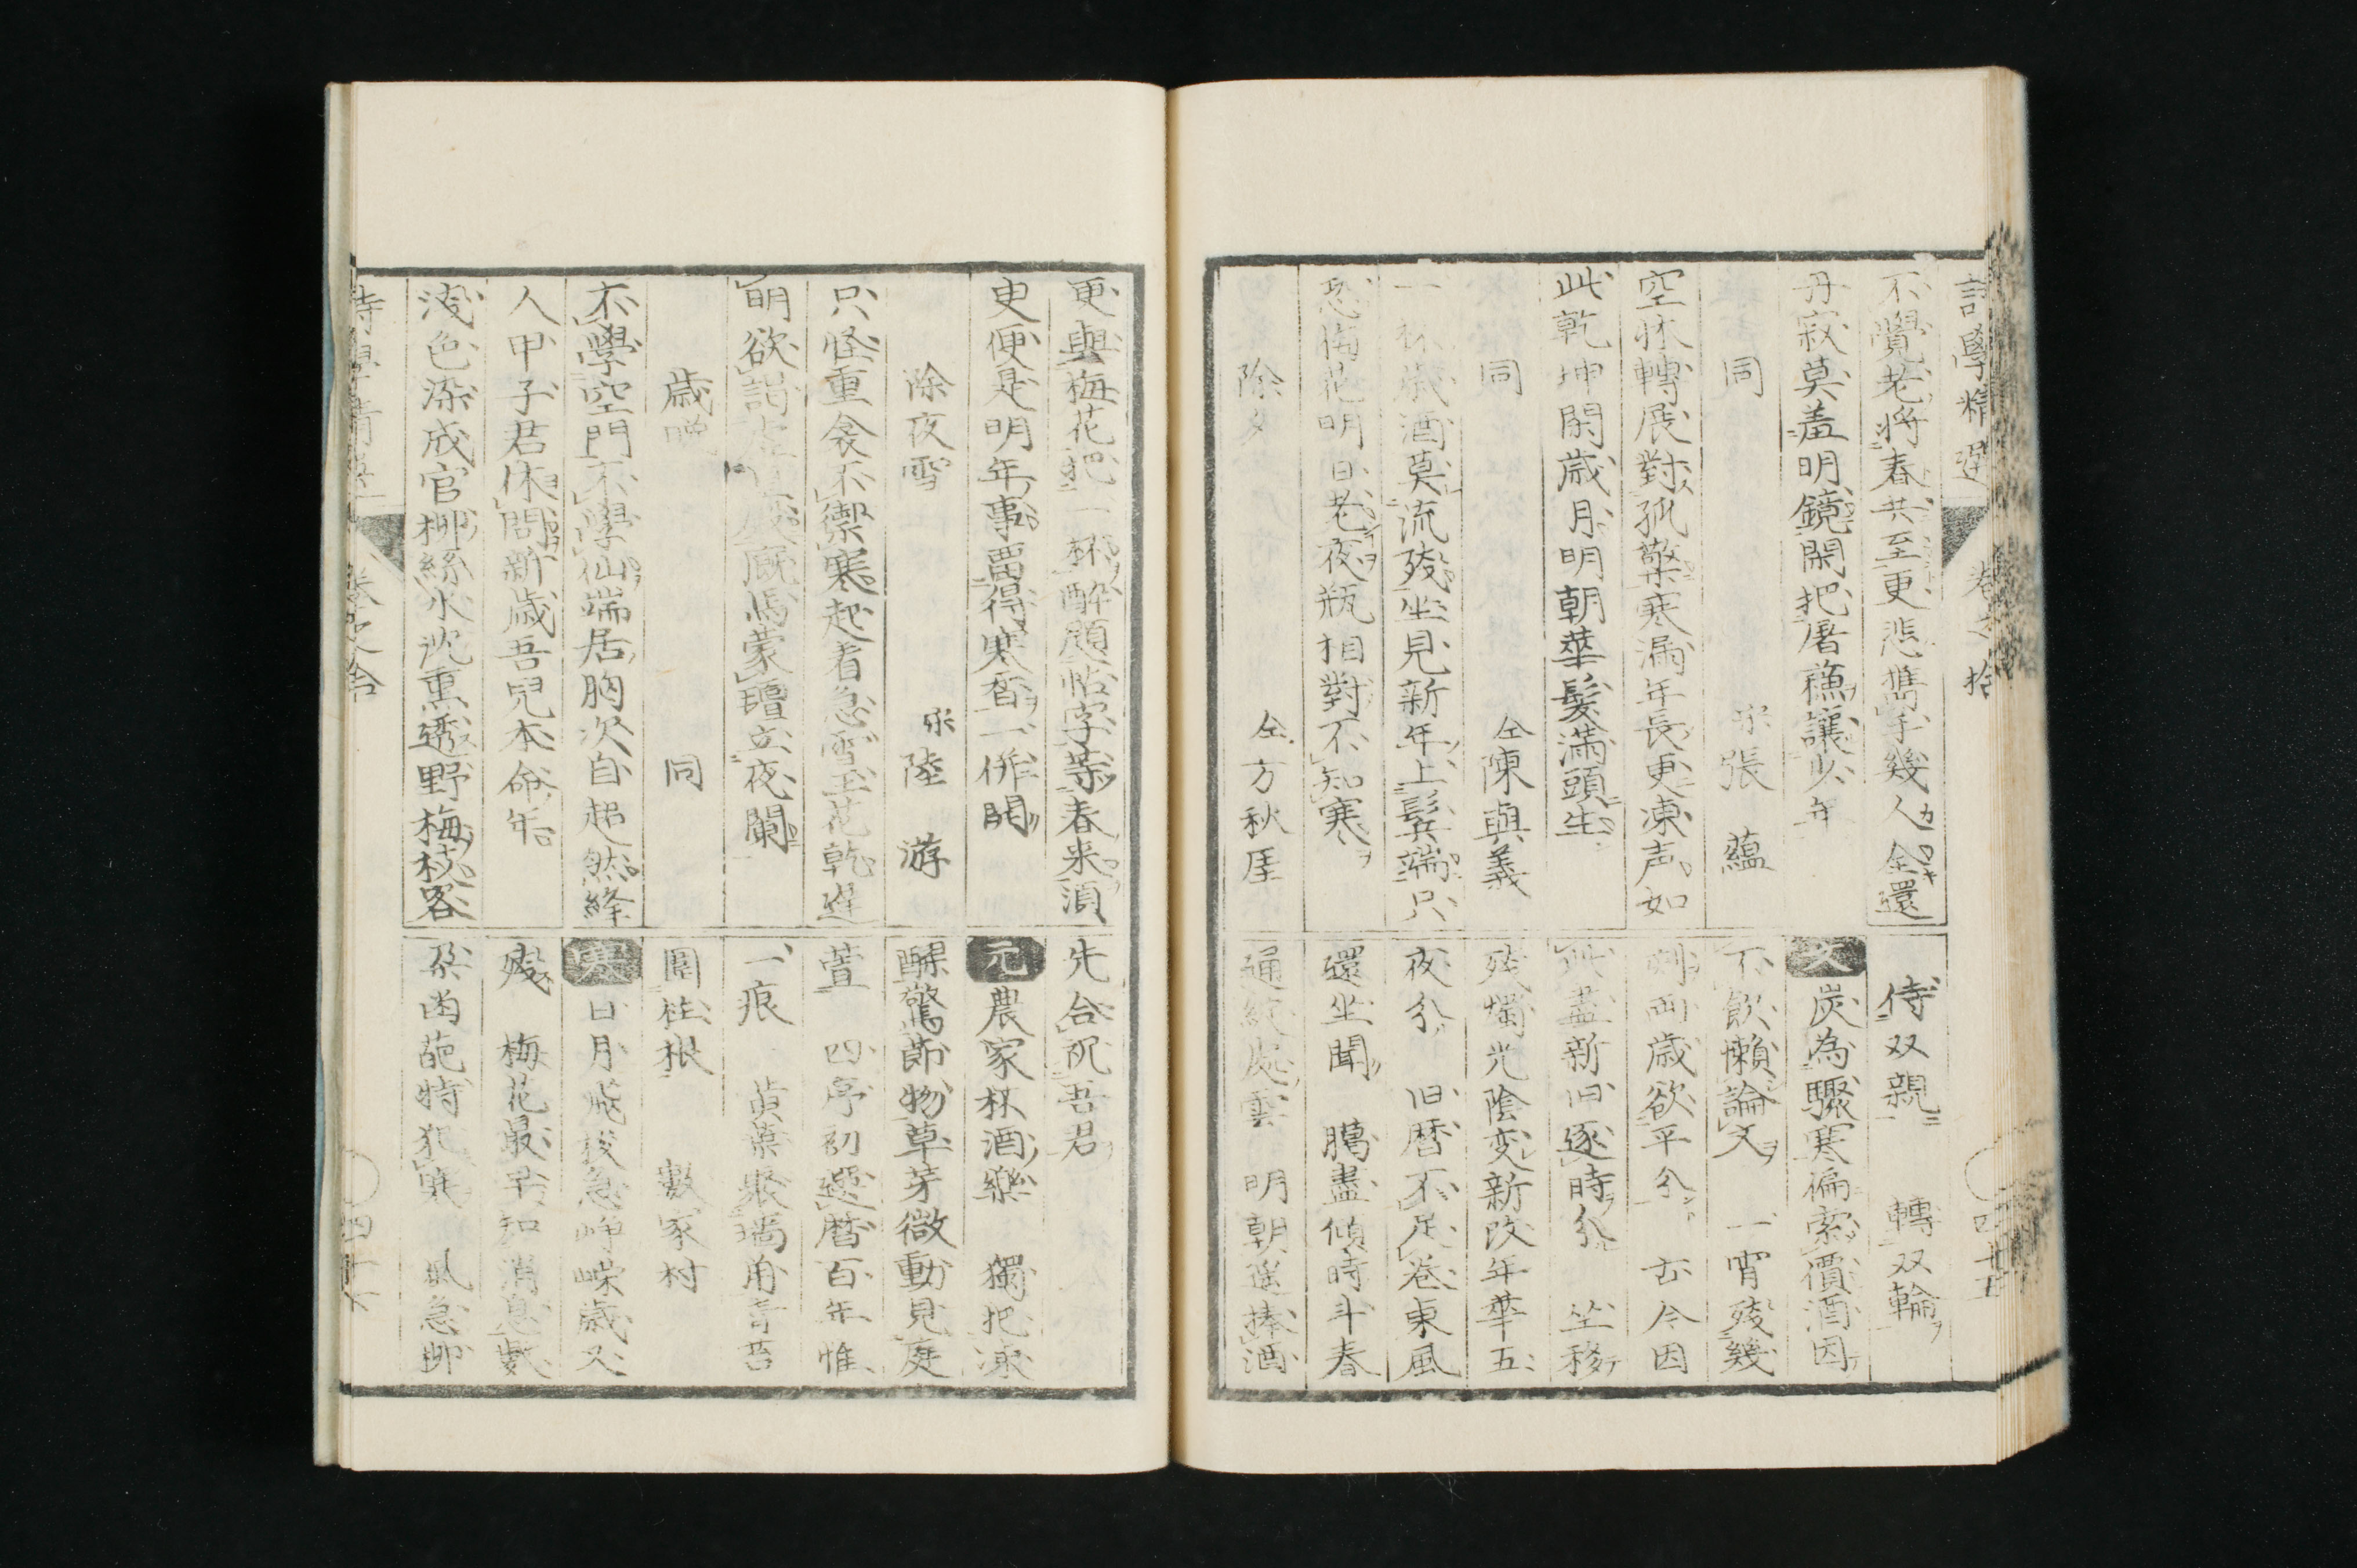 詩學精選 卷之拾 四十五
不覺老將春共至更悲攜手幾人全還
丹寂莫羞明鏡閑把屠蘓讓少年
同 宋張蘊
空牀轉展對孤檠寒漏年長更凍声如
此乾坤閑歳月明朝華髮滿頭生
同 仝陳與義
一杯歳酒莫流殘坐見新年上鬂端只
恐梅花明日老夜瓶相對不知寒
除夕 仝方秋厓
侍双親 轉双輪
文 炭為驟寒偏索價酒因
不飲懶論文 一宵殘幾
刻両歳欲平分 古今因
此盡新旧逐時分 坐移
殘燭光陰变新改年華五
夜分 旧暦不足巻東風
還坐聞 臈盡傾時斗春
通綂處雲 明朝遥捧酒
更與梅花把一杯醉題帖字等春来湏
更便是明年事畱得寒香一併開
除夜雪 宋陸游
只怪重衾不禦寒起看急雪玉花乾遅
明欲謁 廐馬蒙氊立夜闌
歳晚 同
不學空門不學仙端居胸次自超然絳
人甲子君休問新歳吾兒本命年
淺色染成官柳絲水沈熏透野梅枝客
先合祝吾君
元 農家杯酒樂 獨把凍
醪驚節物草芽微動見庭
萱 四序初 暦百年惟
一痕 黄葉聚墻角青苔
圍柱根 數家村
寒 日月飛梭急崢嶸歳又
殘 梅花最早知消息數
朶凾葩特犯寒 風急柳
詩學精選 卷之拾 四十六